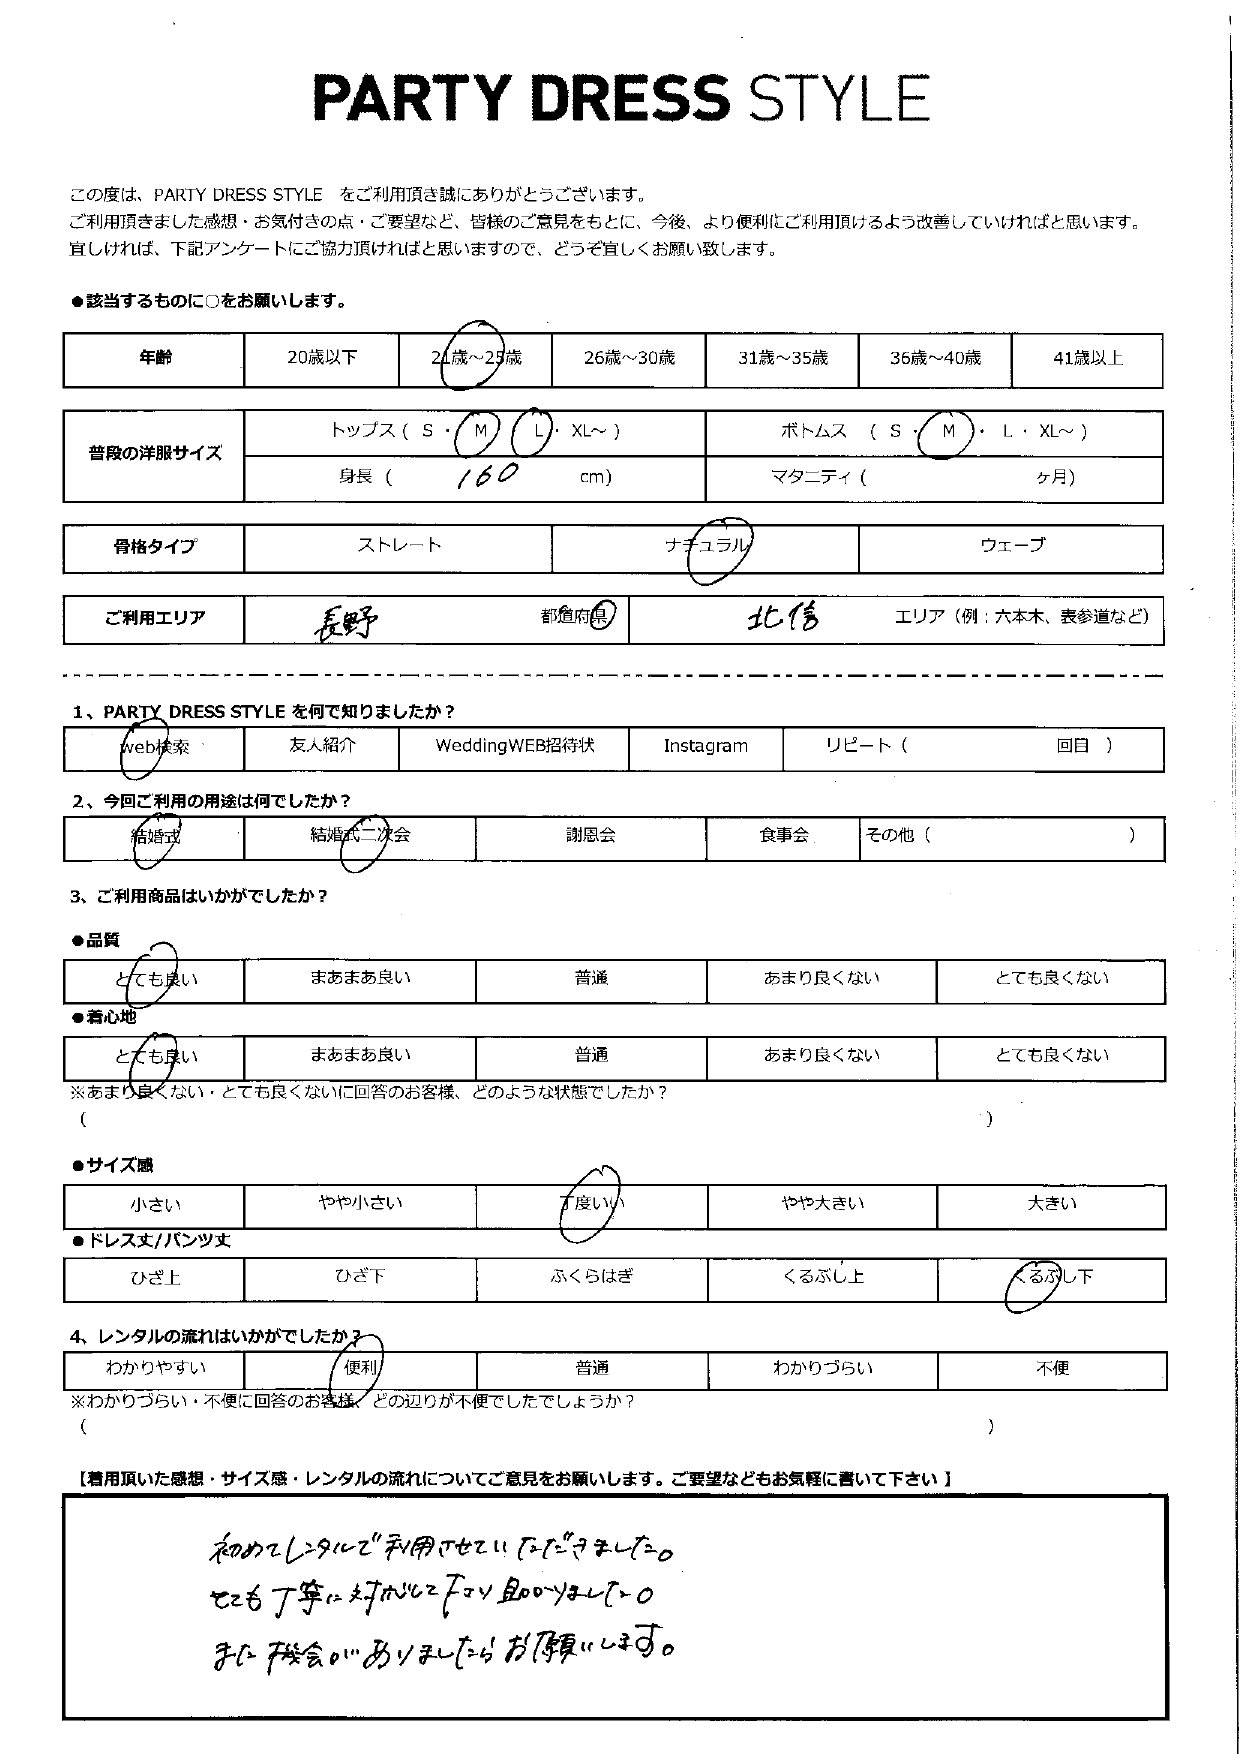 PARTY DRESS STYLE
この度は、PARTY DRESS STYLE をご利用頂き誠にありがとうございます。
ご利用頂きました感想・お気付きの点・ご要望など、皆様のご意見をもとに、今後、より便利にご利用頂けるよう改善していければと思います。
宜しければ、下記アンケートにご協力頂ければと思いますので、どうぞ宜しくお願い致します。
●該当するものに○をお願いします。
年齢 20歳以下 21歳～25歳 26歳～30歳 31歳～35歳 36歳～40歳 41歳以上
普段の洋服サイズ トップス ( S ・ M ・ L ・ XL～ ) ボトムス ( S ・ M ・ L ・ XL～ )
身長 ( 160 cm) マタニティ ( ヶ月)
骨格タイプ ストレート ナチュラル ウェーブ
ご利用エリア 長野 都道府県 北信 エリア（例：六本木、表参道など）
1、PARTY DRESS STYLE を何で知りましたか？
web検索 友人紹介 WeddingWEB招待状 Instagram リピート ( 回目 )
2、今回ご利用の用途は何でしたか？
結婚式 結婚式二次会 謝恩会 食事会 その他 ( )
3、ご利用商品はいかがでしたか？
●品質
とても良い まあまあ良い 普通 あまり良くない とても良くない
●着心地
とても良い まあまあ良い 普通 あまり良くない とても良くない
※あまり良くない・とても良くないに回答のお客様、どのような状態でしたか？
( )
●サイズ感
小さい やや小さい 丁度いい やや大きい 大きい
●ドレス丈/パンツ丈
ひざ上 ひざ下 ふくらはぎ くるぶし上 くるぶし下
4、レンタルの流れはいかがでしたか？
わかりやすい 便利 普通 わかりづらい 不便
※わかりづらい・不便に回答のお客様、どの辺りが不便でしたでしょうか？
( )
【着用頂いた感想・サイズ感・レンタルの流れについてご意見をお願いします。ご要望などもお気軽に書いて下さい 】
初めてレンタルで利用させていただきました。
とても丁寧に対応して下さり助かりました。
また機会がありましたらお願いします。